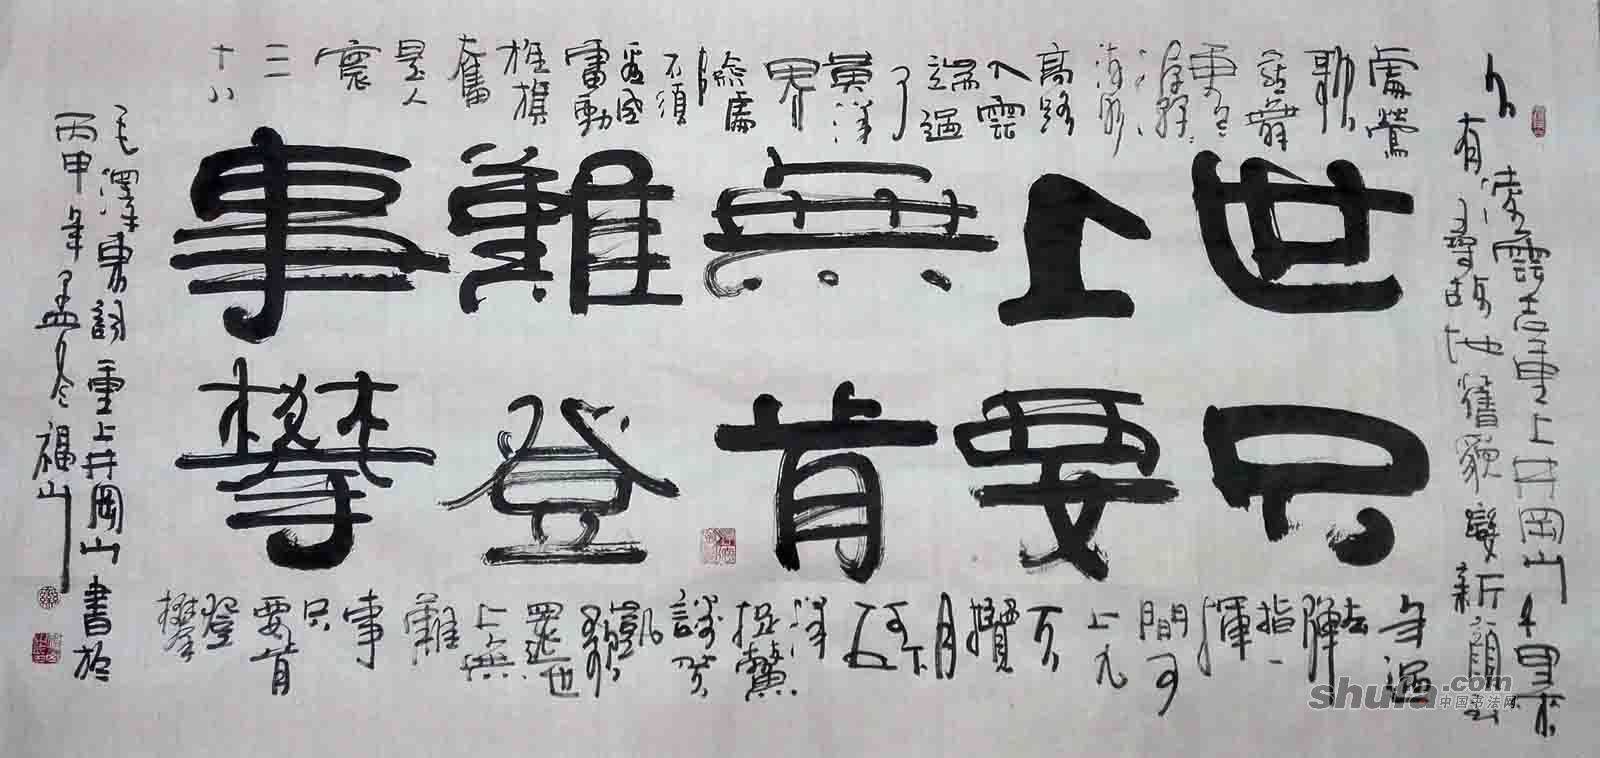 久有
凌雲志重上井岡山千里來
尋故地舊貌變新顏到
處鶯
歌
燕舞
更有
潺潺
流水
高路
入雲
端過
了
黃洋
界
險處
不須
看風
雷動
旌旗
奮
是人
寰
三
十八
年過
去彈
指一
揮
間可
上九
天
攬
月
可下
五
洋
捉鱉
談笑
凱歌
還世
上無
難
事
只
要肯
登
攀
世上無難事
只要肯登攀
毛澤東詞重上井岡山書於
丙申年孟冬福山
shufa.com
中国书法网